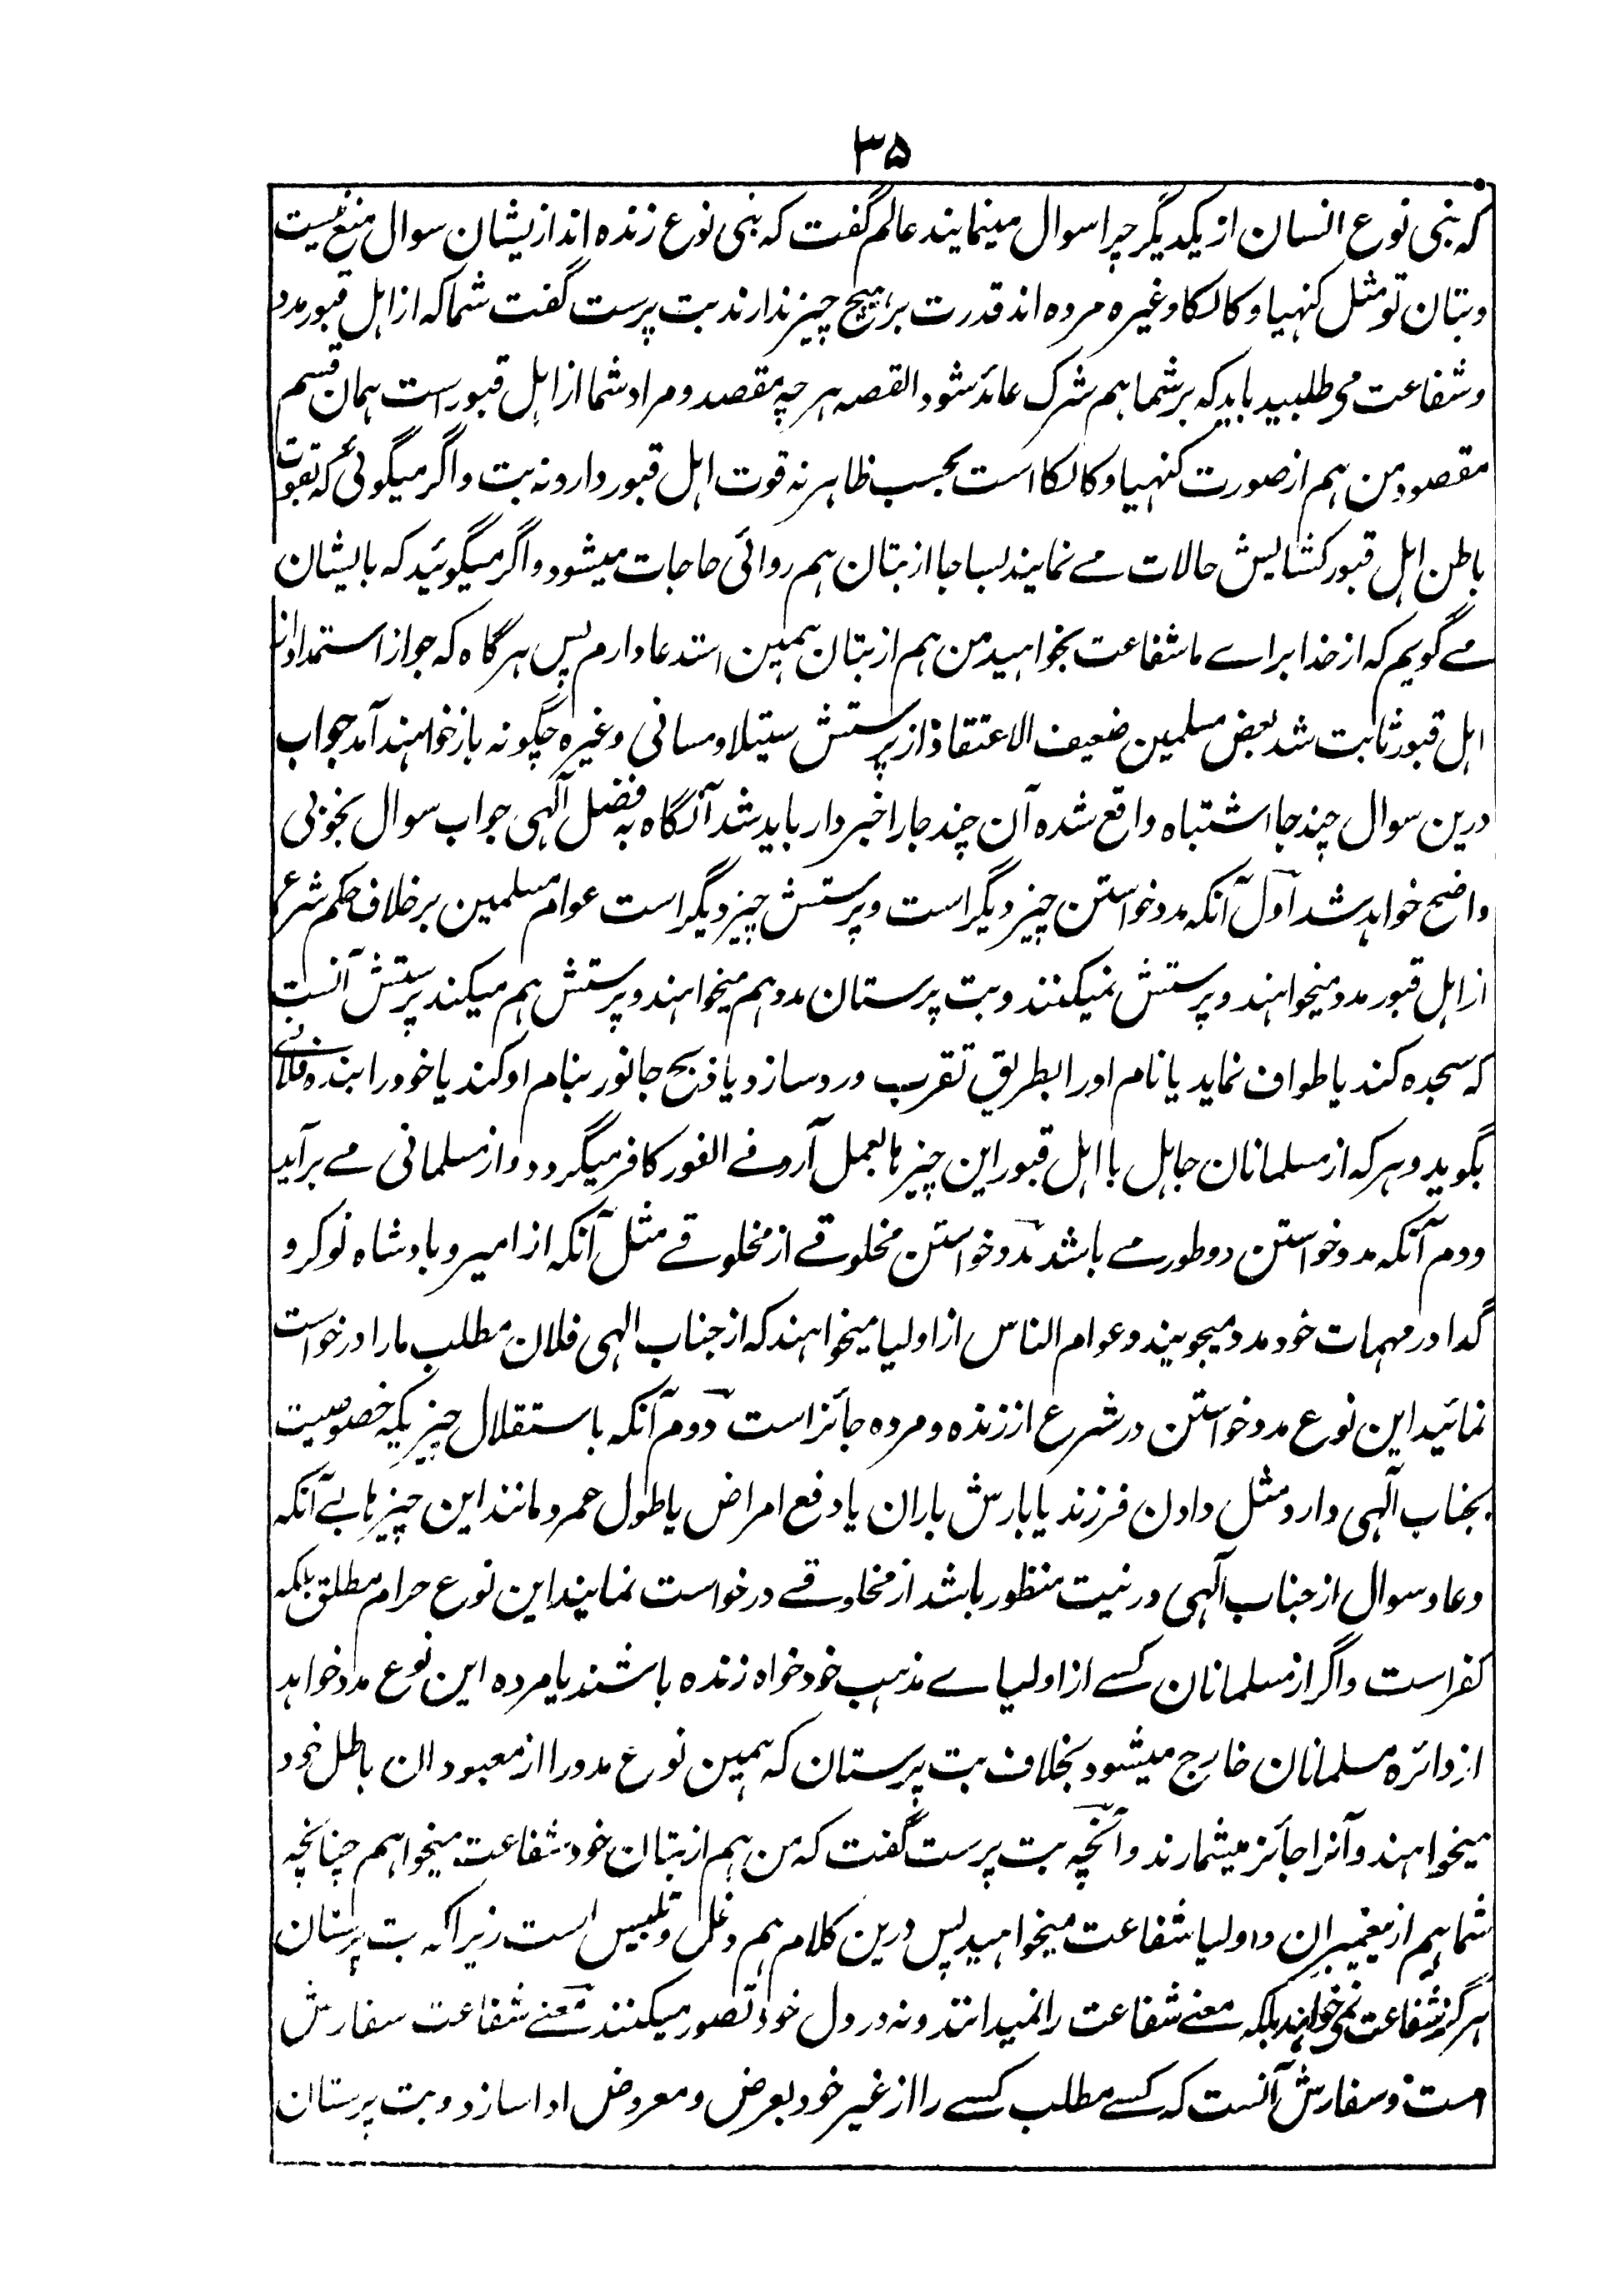 ۳۵
که بنی نوع انسان از یکدیگر چرا سوال مینمایند عالم گفت که بنی نوع زنده اند ازیشان سوال منع نیست
و بتان تو مثل کنهیا و کالکا وغیره مرده اند قدرت بر هیچ چیز ندارند بت پرست گفت شما که از اهل قبور مدد
و شفاعت می طلبید باید که بر شما هم شرک عائد شود القصه هر چه مقصد و مراد شما از اهل قبور است همان قسم
مقصود من هم از صورت کنهیا و کالکا است بحسب ظاهر نه قوت اهل قبور دارد نه بت و اگر میگوئی که بقوت
باطن اهل قبور کشایش حالات مے نمایند بسا جا از بتان هم روائی حاجات میشود و اگر میگوئید که بایشان
مے گویم که از خدا براے ما شفاعت بخواهید من هم از بتان همین استدعا دارم پس هرگاه که جواز استمداد از
اهل قبور ثابت شد بعض مسلمین ضعیف الاعتقاد از پرستش سیتلا و مسانی وغیره چگونه باز خواهند آمد جواب
درین سوال چند جا اشتباه واقع شده آن چند جا را خبردار باید شد آنگاه به فضل آلهی جواب سوال بخوبی
واضح خواهد شد اول آنکه مدد خواستن چیز دیگر است و پرستش چیز دیگر است عوام مسلمین بر خلاف حکم شرع
از اهل قبور مدد میخواهند و پرستش نمیکنند و بت پرستان مدد هم میخواهند و پرستش هم میکنند پرستش آنست
که سجده کند یا طواف نماید یا نام او را بطریق تقرب ورد سازد یا ذبح جانور بنام او کند یا خود را بنده فلانے
بگوید و هر که از مسلمانان جاهل با اهل قبور این چیزها بعمل آرد فے الفور کافر میگردد و از مسلمانی مے برآید
و دوم آنکه مدد خواستن دو طور مے باشد مدد خواستن مخلوقے از مخلوقے مثل آنکه از امیر و بادشاه نوکر و
گدا در مهمات خود مدد میجویند و عوام الناس از اولیا میخواهند که از جناب الهی فلان مطلب ما را درخواست
نمائید این نوع مدد خواستن در شرع از زنده و مرده جائز است دوم آنکه باستقلال چیزیکه خصوصیت
بجناب آلهی دارد مثل دادن فرزند یا بارش باران یا دفع امراض یا طول عمر و مانند این چیزها بے آنکه
دعا و سوال از جناب آلهی در نیت منظور باشد از مخلوقے درخواست نمایند این نوع حرام مطلق بلکه
کفر است و اگر از مسلمانان کسے از اولیاے مذهب خود خواه زنده باشند یا مرده این نوع مدد خواهد
از دائره مسلمانان خارج میشود بخلاف بت پرستان که همین نوع مدد را از معبودان باطل خود
میخواهند و آنرا جائز میشمارند و آنچه بت پرست گفت که من هم از بتان خود شفاعت میخواهم چنانچه
شما هم از پیغمبران و اولیا شفاعت میخواهید پس درین کلام هم دغل و تلبیس است زیرا که بت پرستان
هرگز شفاعت نمی خواهند بلکه معنے شفاعت را نمیدانند و نه در دل خود تصور میکنند معنے شفاعت سفارش
است و سفارش آنست که کسے مطلب کسے را از غیر خود بعرض و معروض ادا سازد و بت پرستان